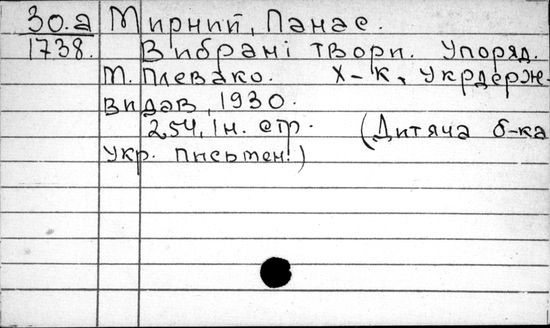 30.а Мирний, Панас.
1738. Вибрані твори. Упоряд.
М. Плевако. Х-к, Укрдерж-
видав, 1930.
254, 1н. стр. (Дитяча б-ка
укр. письмен.)